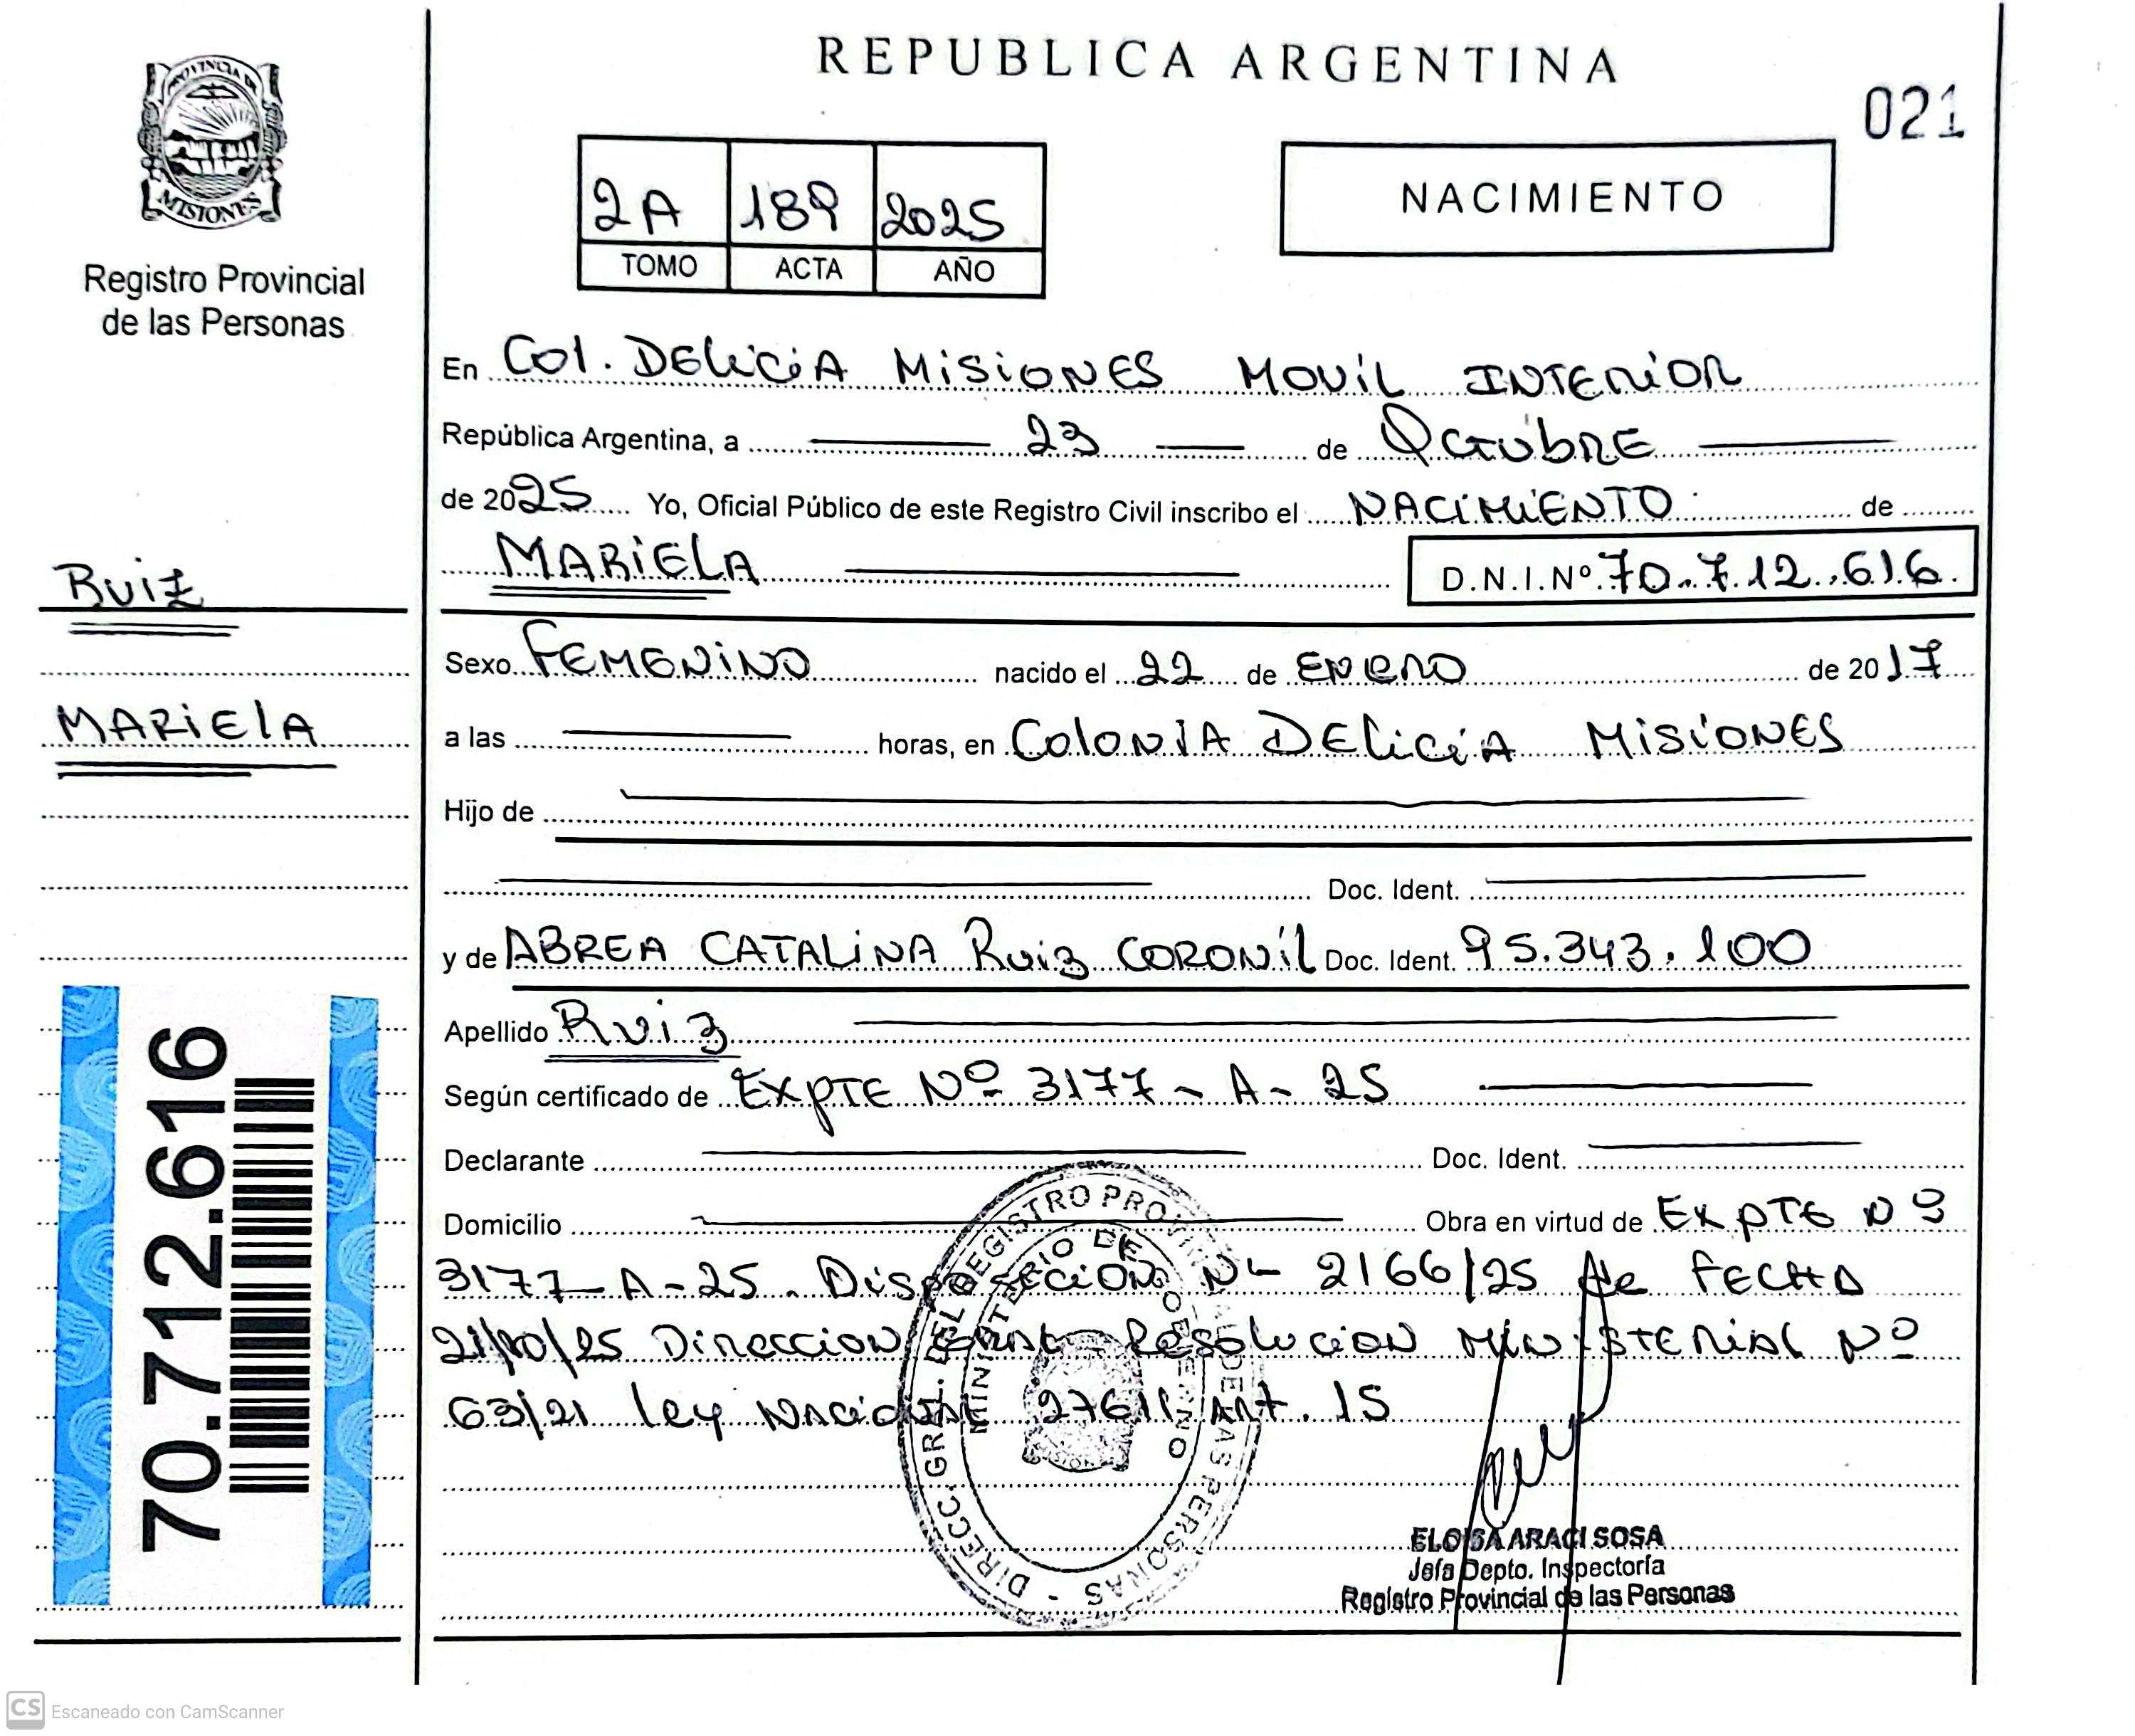 REPUBLICA ARGENTINA
021
PROVINCIA DE
MISIONES
Registro Provincial
de las Personas
2A 189 2025
TOMO ACTA AÑO
NACIMIENTO
En Col. DELiCiA MiSiONES MOViL INTERiOR
República Argentina, a 23 de OCTUBRE
de 2025 Yo, Oficial Público de este Registro Civil inscribo el NACiMiENTO de
MARiELA D.N.I.Nº 70.712.616
Ruiz
MARiELA
Sexo FEMENiNO nacido el 22 de ENERO de 2017
a las horas, en COLONiA DELiCiA MiSiONES
Hijo de
Doc. Ident.
y de ABREA CATALiNA Ruiz CORONiL Doc. Ident. 95.343.100
Apellido Ruiz
Según certificado de EXPTE Nº 3177-A-25
Declarante Doc. Ident.
Domicilio Obra en virtud de EXPTE Nº
3177-A-25. DISPOSICION Nº 2166/25 de FECHA
21/10/25 DIRECCION GRAL - RESOLUCION MINISTERIAL Nº
63/21 ley NACIONAL 27611 ART. 15
70.712.616
DIRECC. GRAL. DEL REGISTRO PROVINCIAL DE LAS PERSONAS -
MINISTERIO DE GOBIERNO
ELOISA ARACI SOSA
Jefa Depto. Inspectoría
Registro Provincial de las Personas
CS Escaneado con CamScanner